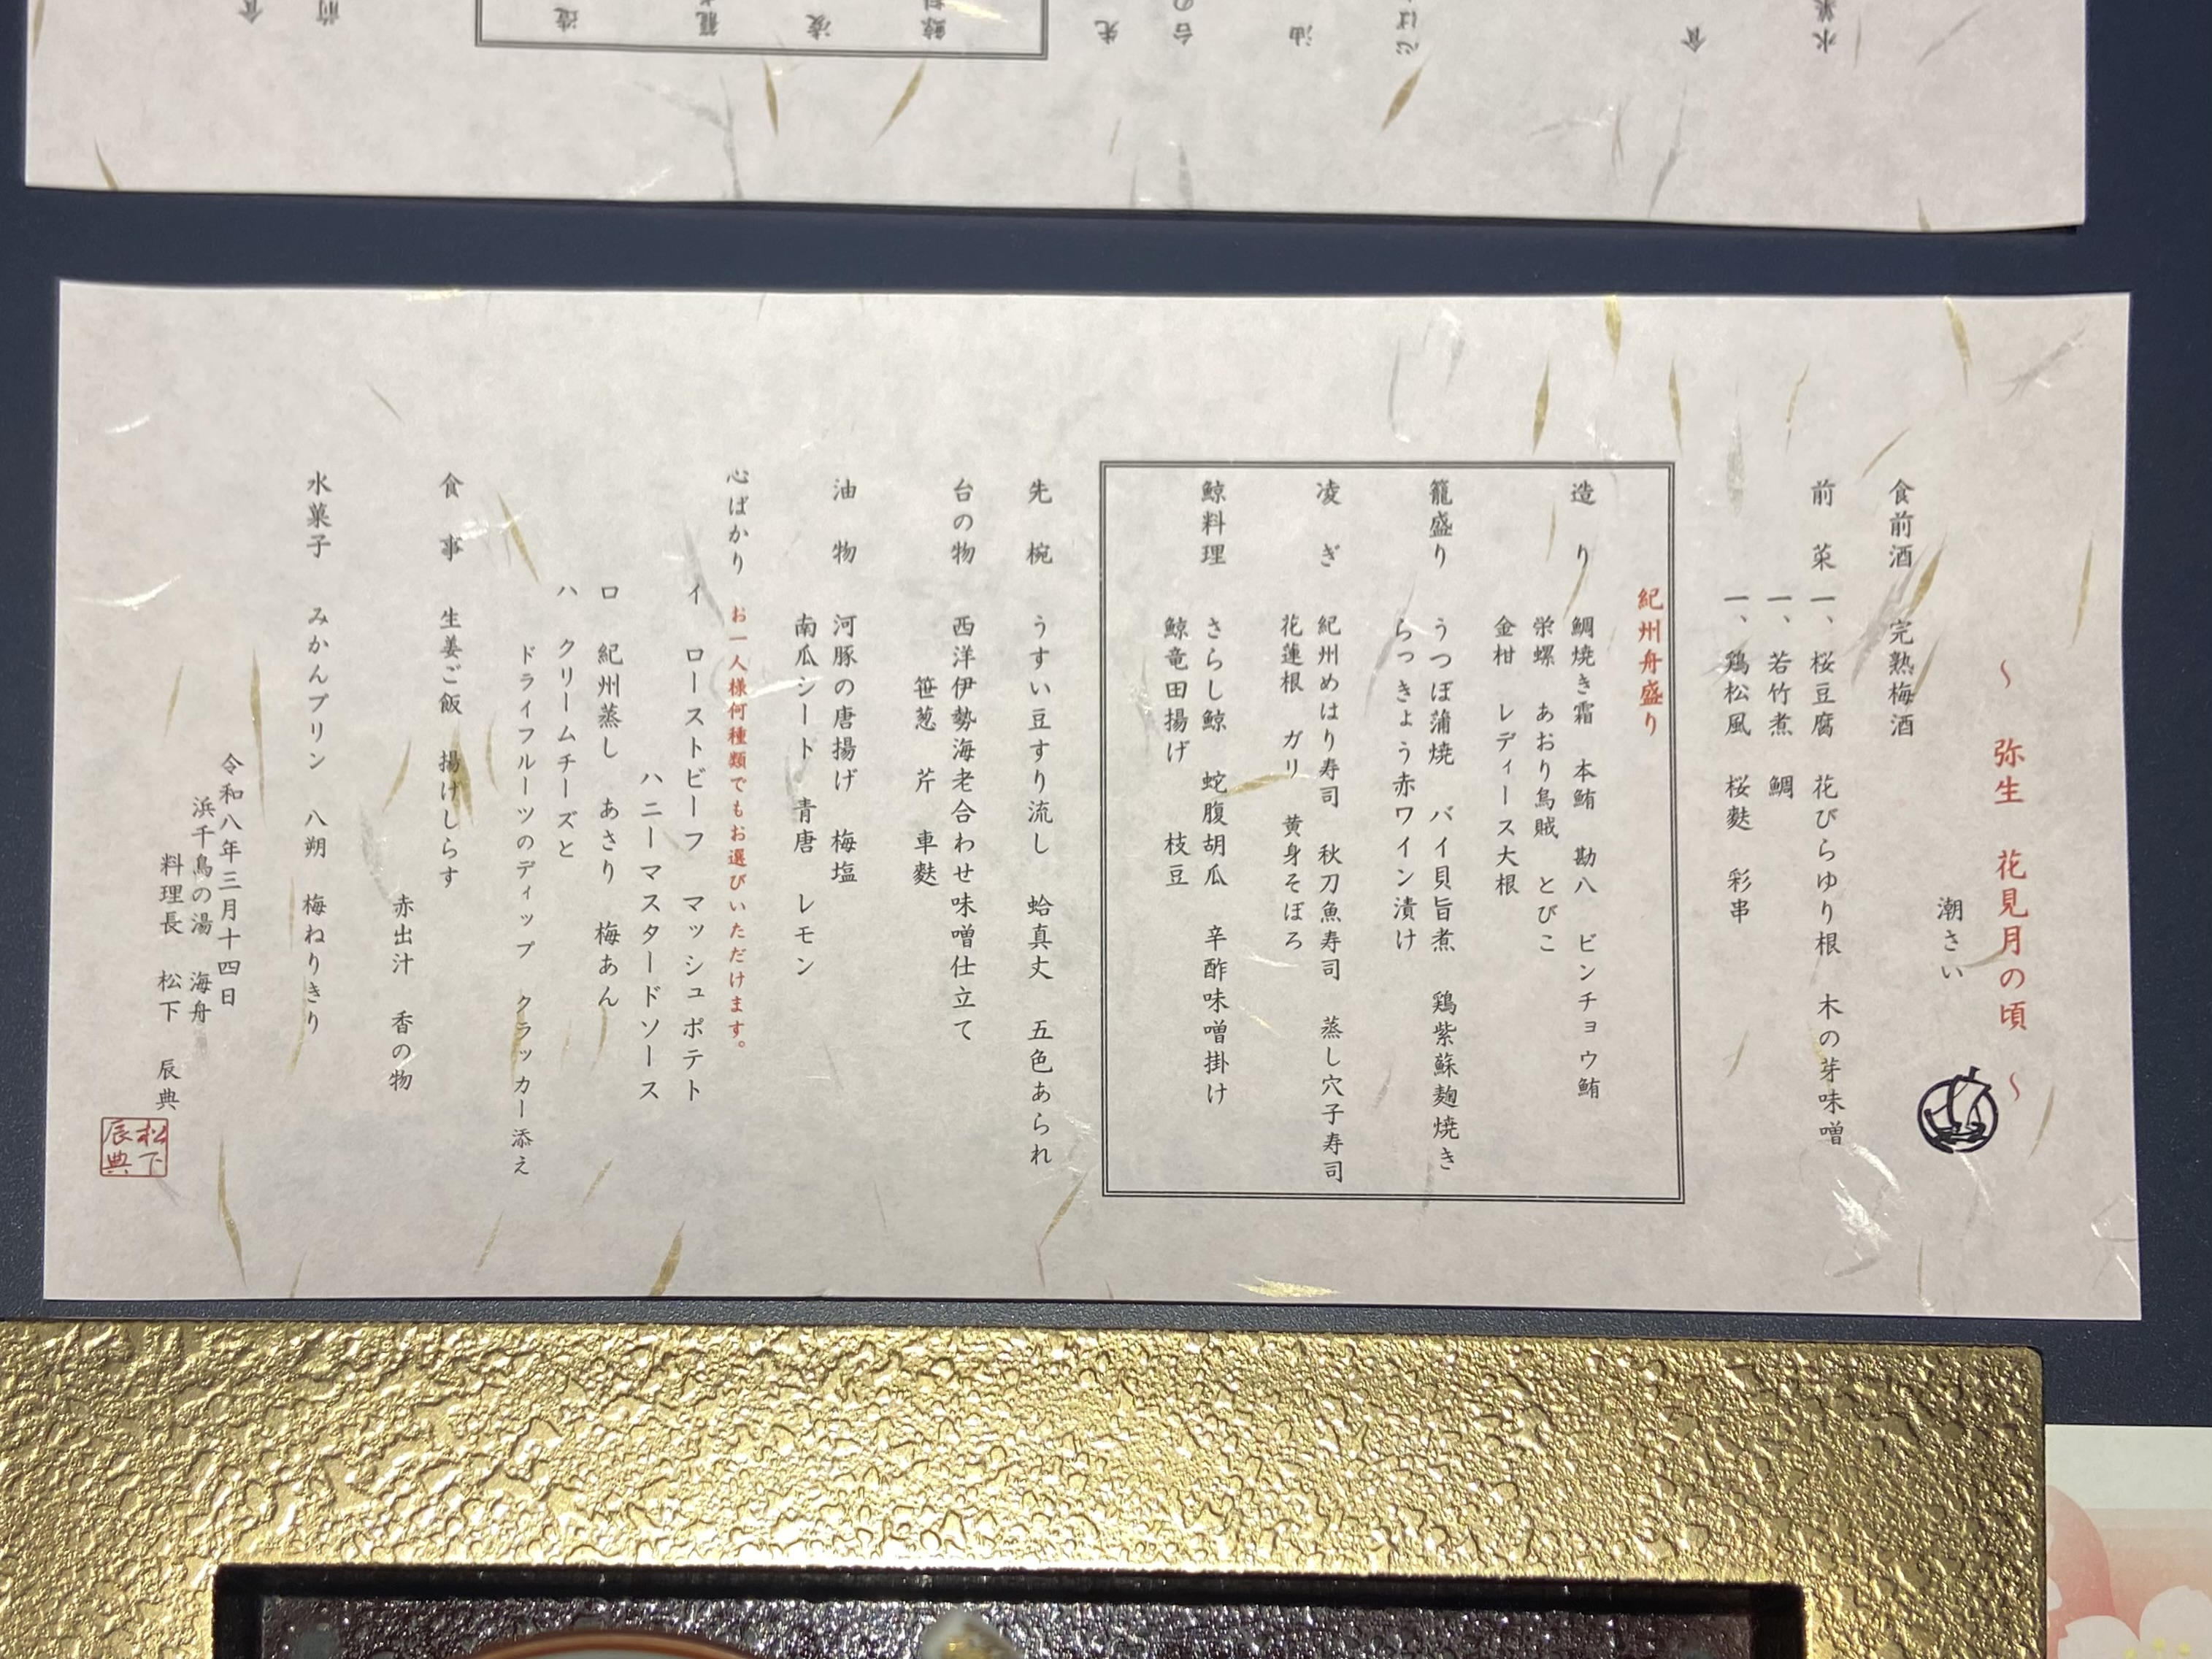 ～ 弥生 花見月の頃 ～
潮さい
食前酒 完熟梅酒
前 菜 一、桜豆腐 花びらゆり根 木の芽味噌
一、若竹煮 鯛
一、鶏松風 桜麩 彩串
紀州舟盛り
造 り 鯛焼き霜 本鮪 勘八 ビンチョウ鮪
栄螺 あおり烏賊 とびこ
金柑 レディース大根
籠盛り うつぼ蒲焼 バイ貝旨煮 鶏紫蘇麹焼き
らっきょう赤ワイン漬け
凌 ぎ 紀州めはり寿司 秋刀魚寿司 蒸し穴子寿司
花蓮根 ガリ 黄身そぼろ
鯨料理 さらし鯨 蛇腹胡瓜 辛酢味噌掛け
鯨竜田揚げ 枝豆
先 椀 うすい豆すり流し 蛤真丈 五色あられ
台の物 西洋伊勢海老合わせ味噌仕立て
笹葱 芹 車麩
油 物 河豚の唐揚げ 梅塩
南瓜シート 青唐 レモン
心ばかり お一人様何種類でもお選びいただけます。
イ ローストビーフ マッシュポテト
ハニーマスタードソース
ロ 紀州蒸し あさり 梅あん
ハ クリームチーズと
ドライフルーツのディップ クラッカー添え
食 事 生姜ご飯 揚げしらす
赤出汁 香の物
水菓子 みかんプリン 八朔 梅ねりきり
令和八年三月十四日
浜千鳥の湯 海舟
料理長 松下 辰典
松下
辰典